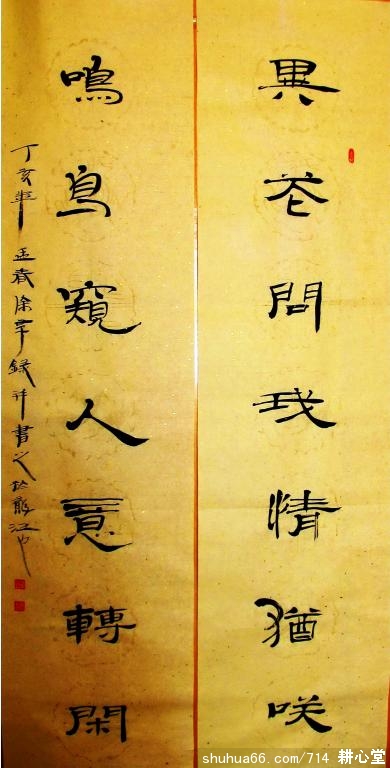 異花問我情猶咲
鳴鳥窺人意轉閑
丁亥年孟春徐錄并書之於龍江
shuhua66.com/714 耕心堂